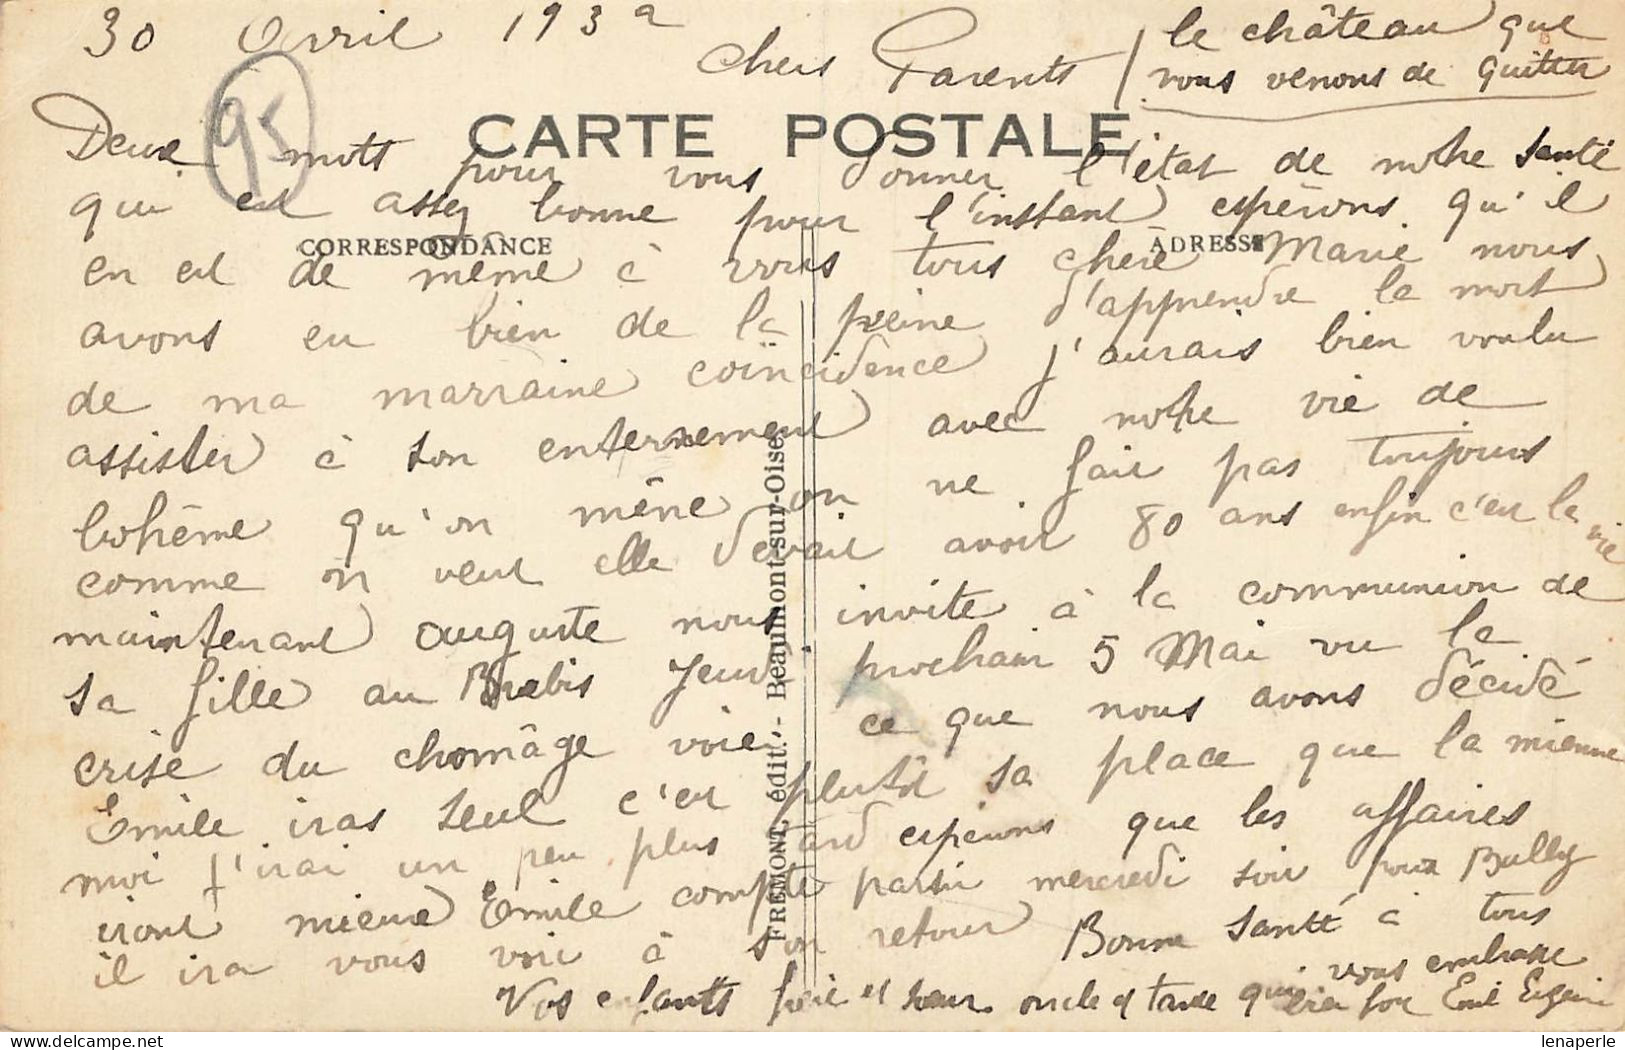 30 Avril 193
chers Parents / le château que
vous venons de quitter
95
CARTE POSTALE
Deux mots pour vous donner l'état de notre santé
qui est assez bonne pour l'instant espérons qu'il
CORRESPONDANCE
ADRESSE
en est de même à vous tous chère Marie nous
avons eu bien de la peine d'apprendre la mort
de ma marraine coïncidence j'aurais bien voulu
assister à son enterrement avec notre vie de
bohême qu'on mêne on ne fait pas toujours
comme on veut elle devait avoir 80 ans enfin c'est la vie
maintenant auguste nous invite à la communion de
sa fille au Brebis Jeudi prochain 5 Mai vu la
crise du chomâge voici ce que nous avons décidé
Emile iras seul c'est plutôt sa place que la mienne
moi j'irai un peu plus tard espérons que les affaires
iront mieux Emile compte partir mercredi soir pour Bully
il ira vous voir à son retour Bonne santé à tous
Vos enfants frère et soeur oncle et tante qui vous embrasse
bien fort Emile Eugénie
FREMONT, édit. - Beaumont-sur-Oise
lenaperle